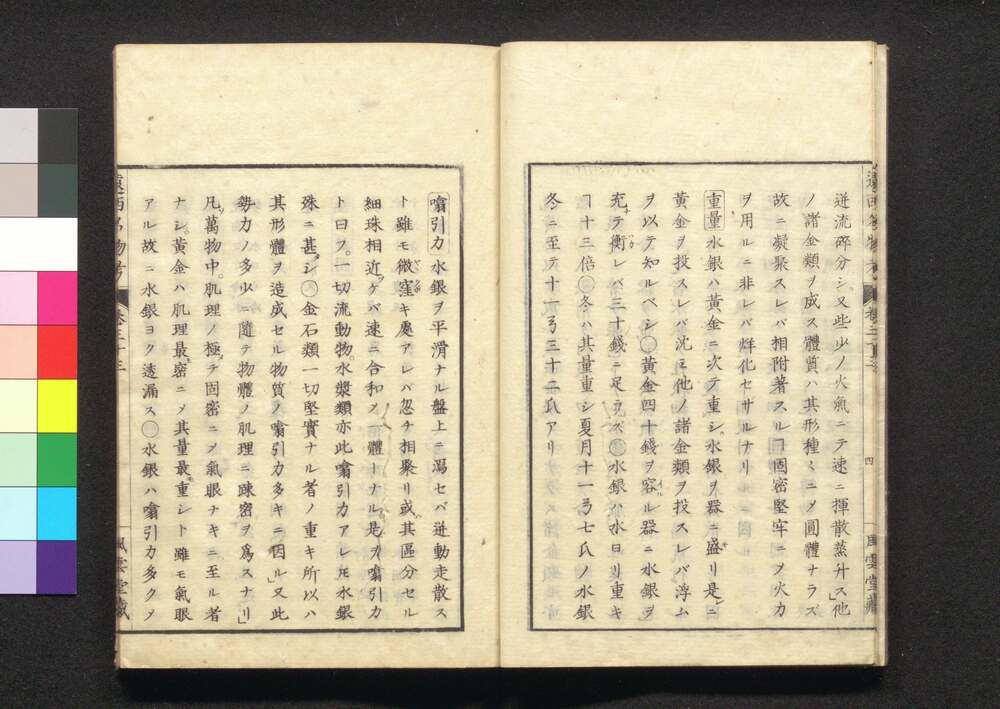 迸流碎分シ又些少ノ火氣ニテ速ニ揮散蒸升ス」他
ノ諸金類ヲ成ス體質ハ其形種々ニㄨ圓體ナラズ
故ニ凝聚スレバ相附著スルヿ固密堅牢ニㄨ火力
ヲ用ルニ非レバ烊化セサルナリ
重量 水銀ハ黃金ニ次テ重シ水銀ヲ器ニ盛リ是ニ
黃金ヲ投スレバ沈ミ他ノ諸金類ヲ投スレバ浮ム
ヲ以テ知ルベシ○黃金四十錢ヲ容ル器ニ水銀ヲ
充テ衡レバ三十錢ニ足ラス○水銀ハ水ヨリ重キ
ヿ十三倍○冬ハ其量重シ夏月十一弓七氏ノ水銀
冬ニ至テ十一弓三十二氏アリ
遠西名物考
四
風雲堂藏
噏引力 水銀ヲ平滑ナル盤上ニ瀉セバ迸動走散ス
ト雖モ微窪キ處アレバ忽チ相聚リ或其區分セル
細珠相近ケバ速ニ合和ㄨ一體トナル是ヲ噏引力
ト曰フ。一切流動物。水漿類亦此噏引力アレ𪜈水銀
殊ニ甚シ○金石類一切堅實ナル者ノ重キ所以ハ
其形體ヲ造成セル物質ノ噏引力多キニ因ル」又此
勢力ノ多少ニ隨テ物體ノ肌理ニ疎密ヲ爲スナリ」
凡萬物中。肌理ノ極テ固密ニㄨ氣眼ナキニ至ル者
ナシ。黃金ハ肌理最密ニㄨ其量最重シト雖モ氣眼
アル故ニ水銀ヨク透漏ス○水銀ハ噏引力多クㄨ
遠西名物考
卷三十三
風雲堂藏